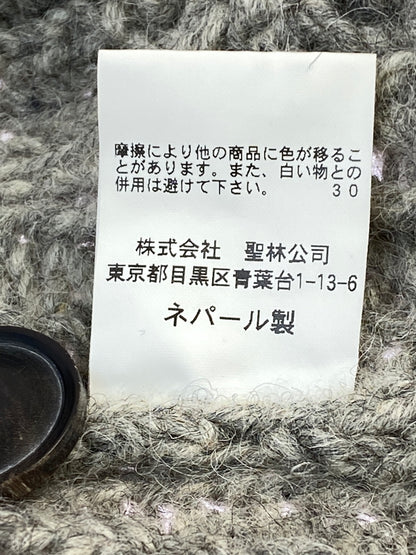 摩擦により他の商品に色が移るこ
とがあります。また、白い物との
併用は避けて下さい。 30
株式会社 聖林公司
東京都目黒区青葉台1-13-6
ネパール製